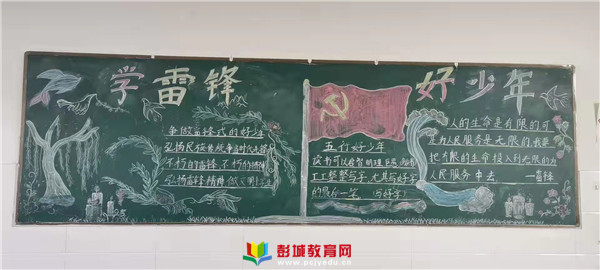 学雷锋
好少年
争做雷锋式的好少年
弘扬民族传统争当时代先锋
不朽的雷锋 不朽的精神
弘扬雷锋精神 做文明学生
五有好少年
读书可以启智明理
工工整整写字
的最后一笔 (写好字)
人的生命是有限的可
是为人民服务是无限的我要
把有限的生命投入到无限的为
人民服务中去 —雷锋
彭城教育网
www.pcjyedu.cn